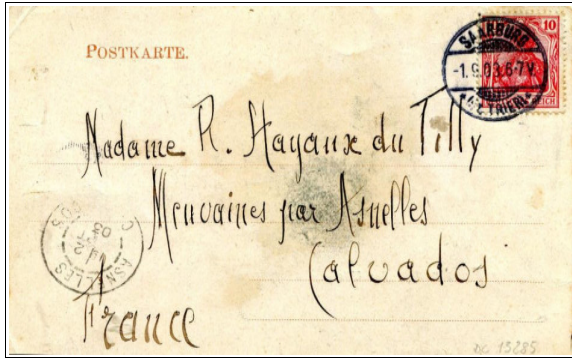 POSTKARTE.
10
SAARBURG
-1.9.03.6-7V.
*(BZ. TRIER)*
REICH
Madame R. Hayaux du Tilly
Meuvaines par Asnelles
Calvados
France
ASNELLES
03
13285